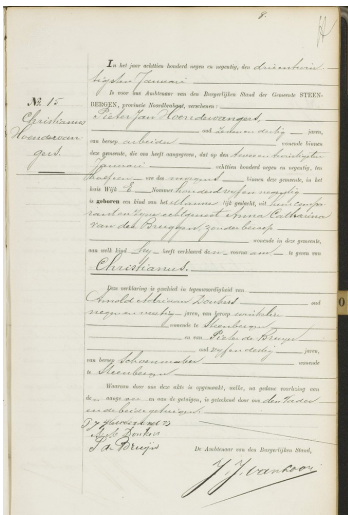 8.
No. 15
Christianus
Hoendervangers.
In het jaar achttien honderd negen en negentig, den drieëntwintigsten Januari
is voor ons Ambtenaar van den Burgerlijken Stand der Gemeente STEENBERGEN, provincie Noordbrabant, verschenen:
Pieter Jan Hoendervangers
oud jaren,
van beroep arbeider wonende binnen
deze gemeente, die ons heeft aangegeven, dat op den tweeentwintigsten
Januari achttien honderd negen en negentig, ten
half ure des morgens binnen deze gemeente, in het
huis Wijk E Nommer honderd vijf en negentig
is geboren een kind van het mannelijk geslacht, uit
zijne echtgenoote Anna Catharina
van den Bergh, zonder beroep
wonende in deze gemeente,
aan welk kind hij heeft verklaard den voornaam te geven van
Christianus.
Deze verklaring is geschied in tegenwoordigheid van
Arnold Adriaan Donkers oud
negen en veertig jaren, van beroep winkelier
wonende te Steenbergen
en van Pieter de Bruijn
oud vijf en dertig jaren,
van beroep schoenmaker wonende
te Steenbergen
Waarvan door ons deze akte is opgemaakt, welke, na gedane voorlezing aan
de aangever en aan de getuigen, is geteekend door ons den vader
en de beide getuigen
P J Hoendervangers
Donkers
P de Bruijn
De Ambtenaar van den Burgerlijken Stand,
J. J. van Loon